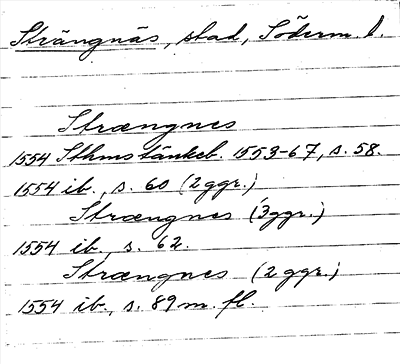 Strängnäs, stad, Söderm. l.
Strængnes
1554 Sthms tänkeb. 1553-67, s. 58.
1554 ib., s. 60 (2 ggr.)
Strængnes (3 ggr.)
1554 ib., s. 62.
Strængnes (2 ggr.)
1554 ib., s. 89 m. fl.